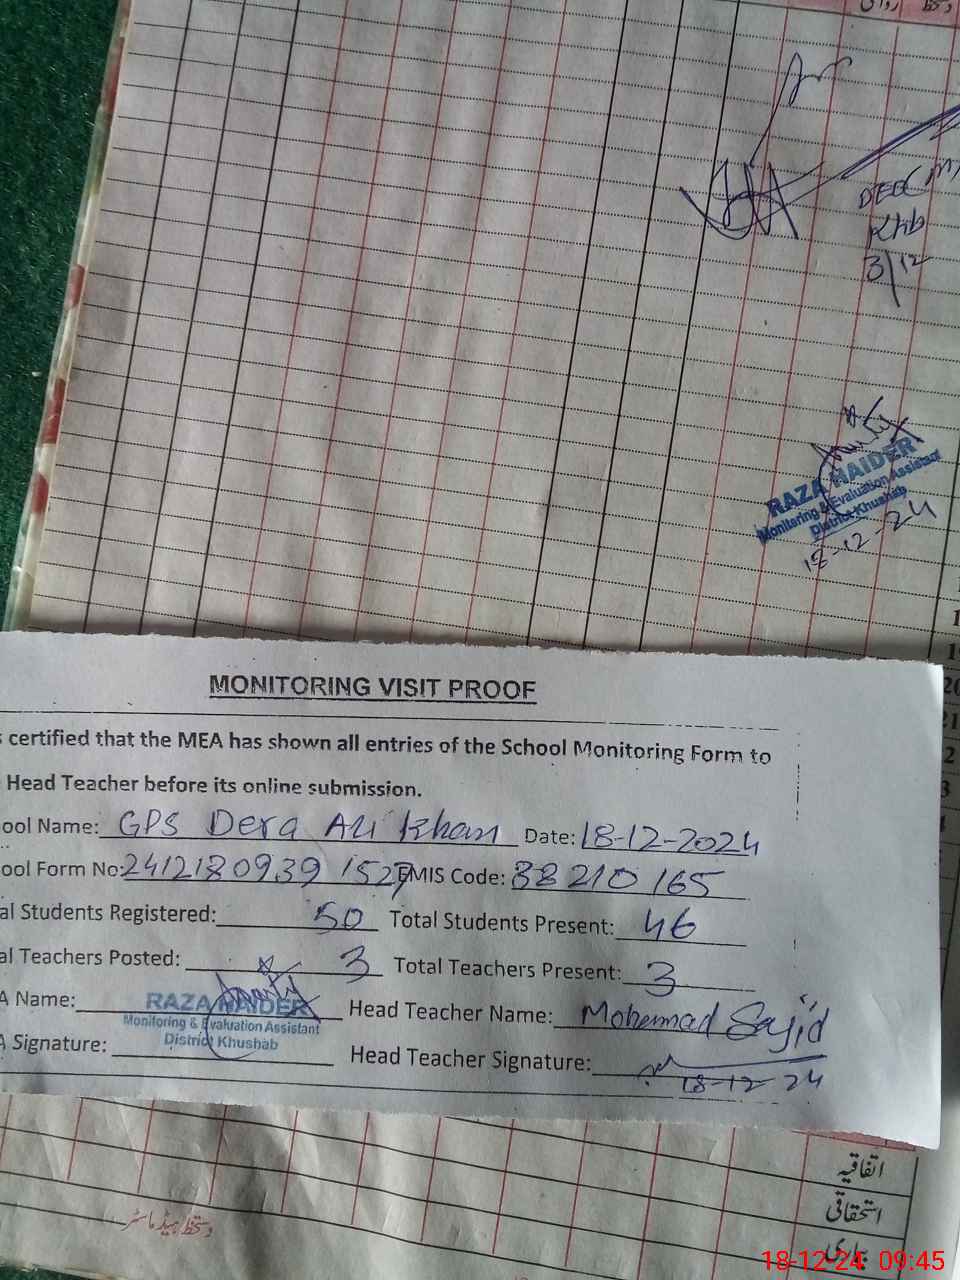 DEO(M
Khb
3/12
RAZA HAIDER
Monitoring & Evaluation Assistant
District Khushab
18-12-24
1
19
20
21
2
3
MONITORING VISIT PROOF
s certified that the MEA has shown all entries of the School Monitoring Form to
Head Teacher before its online submission.
ool Name: GPS Dera Ali Khan Date: 18-12-2024
ool Form No: 2412180939 1527 EMIS Code: 38210165
al Students Registered: 50 Total Students Present: 46
al Teachers Posted: 3 Total Teachers Present: 3
A Name: RAZA HAIDER Head Teacher Name: Mohammad Sajid
Monitoring & Evaluation Assistant
District Khushab
A Signature: Head Teacher Signature:
18-12-24
اتفاقیہ
استحقاقی
بیماری
دستخط ہیڈ ماسٹر
18-12-24 09:45